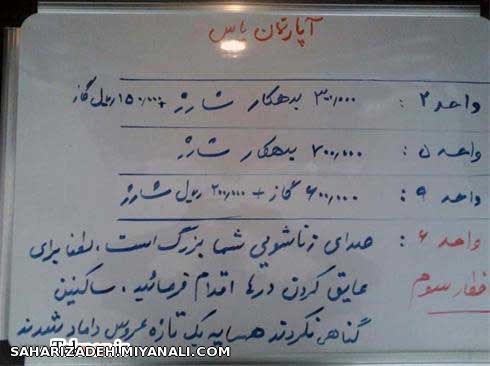 آپارتمان یاس
واحد ۲ : ۳۰۰٫۰۰۰ بدهکار شارژ + ۱۵۰٫۰۰۰ ریال گاز
واحد ۵ : ۷۰۰٫۰۰۰ بدهکار شارژ
واحد ۹ : ۶۰۰٫۰۰۰ گاز + ۲۰۰٫۰۰۰ ریال شارژ
واحد ۶ : صدای زناشویی شما بزرگ است ، لطفا برای
اخطار سوم عایق کردن درها اقدام فرمائید . ساکنین
گناهی نکردند همسایه یک تازه عروس داماد شدند
SAHARIZADEH.MIYANALI.COM